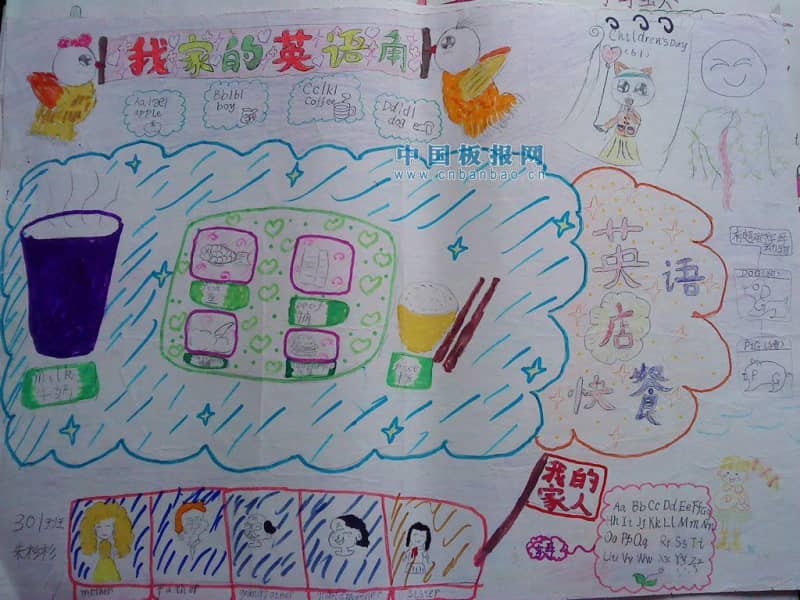 我家的英语角
Children's Day
(6.1)
apple
Bb|b|
boy
Cc|k|
coffee
Dd|d|
dog
中国板报网
www.cnbanbao.cn
英语
店
快餐
milk
牛奶
DOG(狗)
PIG(猪)
我的
家人
301班
mother
father
grandfather
grandmother
sister
Aa Bb Cc Dd Ee Ff Gg
Hh Ii Jj Kk Ll Mm Nn
Oo Pp Qq Rr Ss Tt
Uu Vv Ww Xx Yy Zz